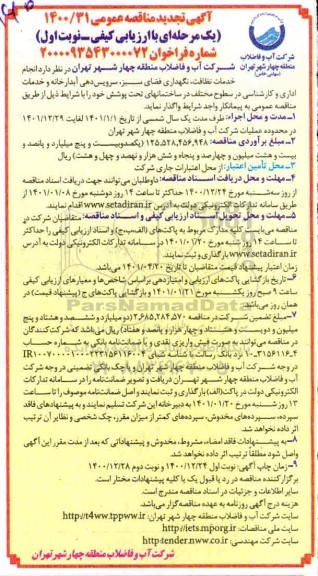 آگهی تجدید مناقصه عمومی ۱۴۰۰/۳۱
(یک مرحله‌ای با ارزیابی کیفی - نوبت اول)
شماره فراخوان ۲۰۰۰۰۹۳۵۴۳۰۰۰۰۷۲
شرکت آب و فاضلاب
منطقه چهار شهر تهران
(سهامی خاص)
شرکت آب و فاضلاب منطقه چهار شهر تهران در نظر دارد انجام
خدمات نظافت، نگهداری فضای سبز، سرویس‌دهی آبدارخانه و خدمات
اداری و کارشناسی در سطوح مختلف در ساختمانهای تحت پوشش خود را با شرایط ذیل از طریق
مناقصه عمومی به پیمانکار واجد شرایط واگذار نماید.
۱-مدت و محل اجراء: ظرف مدت یک سال شمسی از تاریخ ۱۴۰۱/۱/۱ لغایت ۱۴۰۱/۱۲/۲۹
در محدوده عملیات شرکت آب و فاضلاب منطقه چهار شهر تهران
۲-مبلغ برآوردی مناقصه: ۱۲۵,۵۲۸,۴۵۶,۹۴۸ (یکصدوبیست و پنج میلیارد و پانصد و
بیست و هشت میلیون و چهارصد و پنجاه و شش هزار و نهصد و چهل و هشت) ریال
۳-محل تأمین اعتبار: از محل اعتبارات جاری شرکت
۴-مهلت و محل دریافت اسناد مناقصه: داوطلبان می‌توانند جهت دریافت اسناد مناقصه
از روز سه‌شنبه مورخ ۱۴۰۰/۱۲/۲۴ حداکثر تا ساعت ۱۴ روز دوشنبه مورخ ۱۴۰۱/۰۱/۰۸ از
طریق سامانه تدارکات الکترونیکی دولت به آدرس www.setadiran.ir اقدام نمایند.
۵-مهلت و محل تحویل اسناد ارزیابی کیفی و اسناد مناقصه: متقاضیان شرکت در
مناقصه می‌بایست کلیه مدارک مربوط به پاکت‌های (الف-ب-ج) و اسناد ارزیابی کیفی را حداکثر
تا ساعت ۱۴ روز شنبه مورخ ۱۴۰۱/۰۱/۲۰ در سامانه تدارکات الکترونیکی دولت به آدرس
www.setadiran.ir بارگذاری و ثبت نمایند.
زمان اعتبار پیشنهاد قیمت متقاضیان تا تاریخ ۱۴۰۱/۰۴/۲۰ می‌باشد.
۶-تاریخ بازگشایی پاکت‌های ارزیابی و امتیازدهی براساس شاخص‌ها و معیارهای ارزیابی کیفی
ساعت ۹ صبح روز یکشنبه مورخ ۱۴۰۱/۰۱/۲۱ و بازگشایی پاکت‌های ج (پیشنهاد قیمت) در
همان روز می‌باشد.
ParsNamadData
۷-مبلغ تضمین شرکت در مناقصه ۲,۶۸۵,۲۸۴,۵۷۰ (دومیلیارد و ششصد و هشتاد و پنج
میلیون و دویست و هشتاد و چهار هزار و پانصد و هفتاد) ریال می‌باشد که شرکت‌کنندگان
در مناقصه می‌توانند به صورت فیش واریزی نقدی و یا ضمانت‌نامه بانکی به شماره حساب
در وجه شرکت آب و فاضلاب منطقه چهار شهر تهران و یا چک بانکی تضمینی در وجه شرکت
آب و فاضلاب منطقه چهار شهر تهران دریافت و تصویر ضمانت‌نامه را در سامانه تدارکات
الکترونیکی دولت در پاکت(الف) بارگذاری و ثبت نمایند و اصل ضمانت‌نامه موصوف را تا ساعت
۱۳ روز شنبه مورخ ۱۴۰۱/۰۱/۲۰ به دبیرخانه این شرکت تسلیم نمایند و به پیشنهادهای فاقد
سپرده، سپرده‌های مخدوش، سپرده‌های کمتر از میزان مقرر، چک شخصی و نظایر آن ترتیب
اثر داده نخواهد شد.
۸-به پیشنهادات فاقد امضاء، مشروط، مخدوش و پیشنهاداتی که بعد از مدت مقرر این آگهی
واصل شود مطلقاً ترتیب اثر داده نخواهد شد.
۹-زمان چاپ آگهی: نوبت اول ۱۴۰۰/۱۲/۲۴ و نوبت دوم ۱۴۰۰/۱۲/۲۸
برگزارکننده مناقصه در رد یا قبول یک یا کلیه پیشنهادات مختار است.
سایر اطلاعات و جزئیات در اسناد مناقصه مندرج است.
هزینه درج آگهی روزنامه به عهده مناقصه‌گر می‌باشد.
سایت شرکت آب و فاضلاب منطقه چهار تهران: http://t4ww.tppww.ir
سایت ملی مناقصات: http://iets.mporg.ir
سایت شرکت مهندسی: http:tender.nww.co.ir
شرکت آب و فاضلاب منطقه چهار شهر تهران